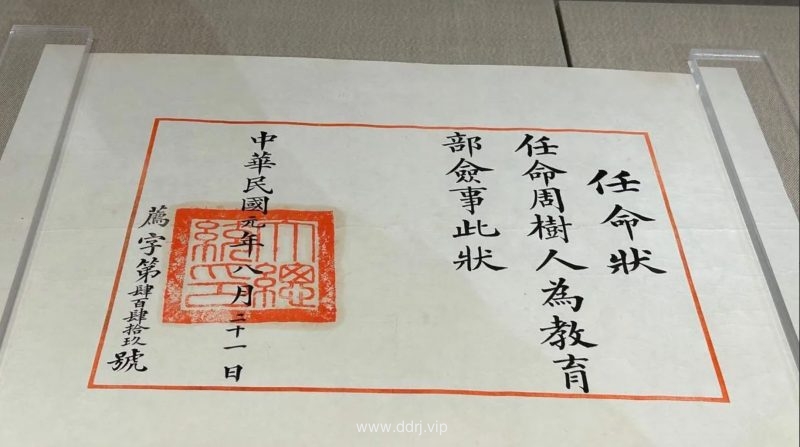 任命狀
任命周樹人為教育
部僉事此狀
中華民國元年八月二十一日
大總統印
薦字第肆百肆拾玖號
www.ddrj.vip